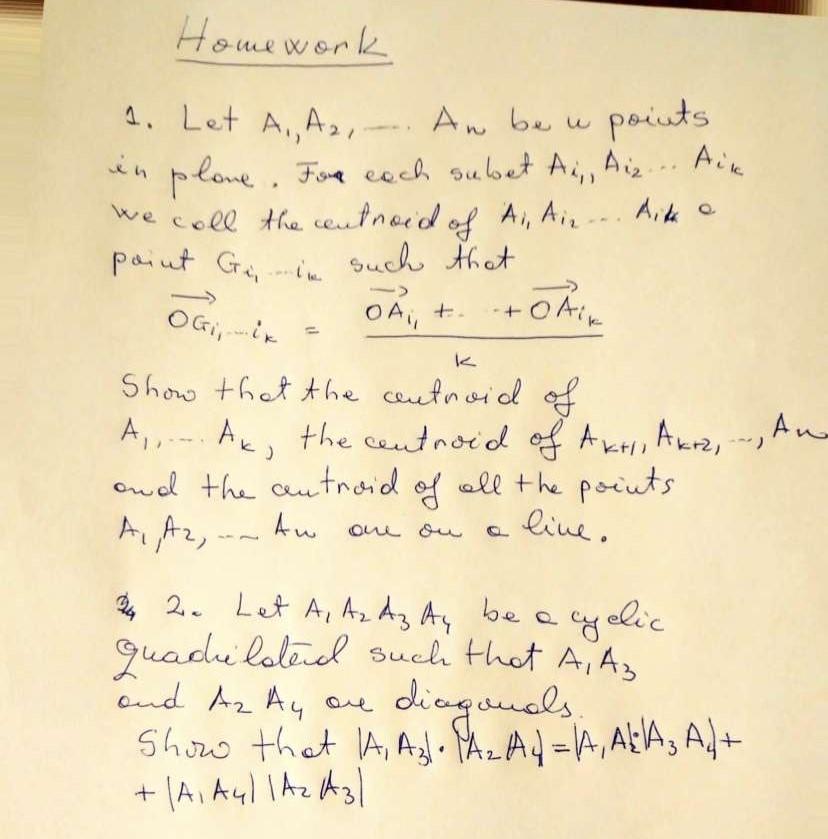 Homework
1. Let A₁, A₂, .... Aₙ be n points
in plane. For each subet Aᵢ₁, Aᵢ₂ ... Aᵢₖ
we call the centroid of Aᵢ₁ Aᵢ₂ ... Aᵢₖ a
point Gᵢ₁...ᵢₖ such that
OGᵢ₁,...ᵢₖ = (OAᵢ₁ + ... + OAᵢₖ) / k
Show that the centroid of
A₁,.... Aₖ, the centroid of Aₖ₊₁, Aₖ₊₂, ..., Aₙ
and the centroid of all the points
A₁, A₂, ... Aₙ are on a line.
2. Let A₁ A₂ A₃ A₄ be a cyclic
quadrilateral such that A₁ A₃
and A₂ A₄ are diagonals.
Show that |A₁ A₃| · |A₂ A₄| = |A₁ A₂| · |A₃ A₄| +
+ |A₁ A₄| |A₂ A₃|